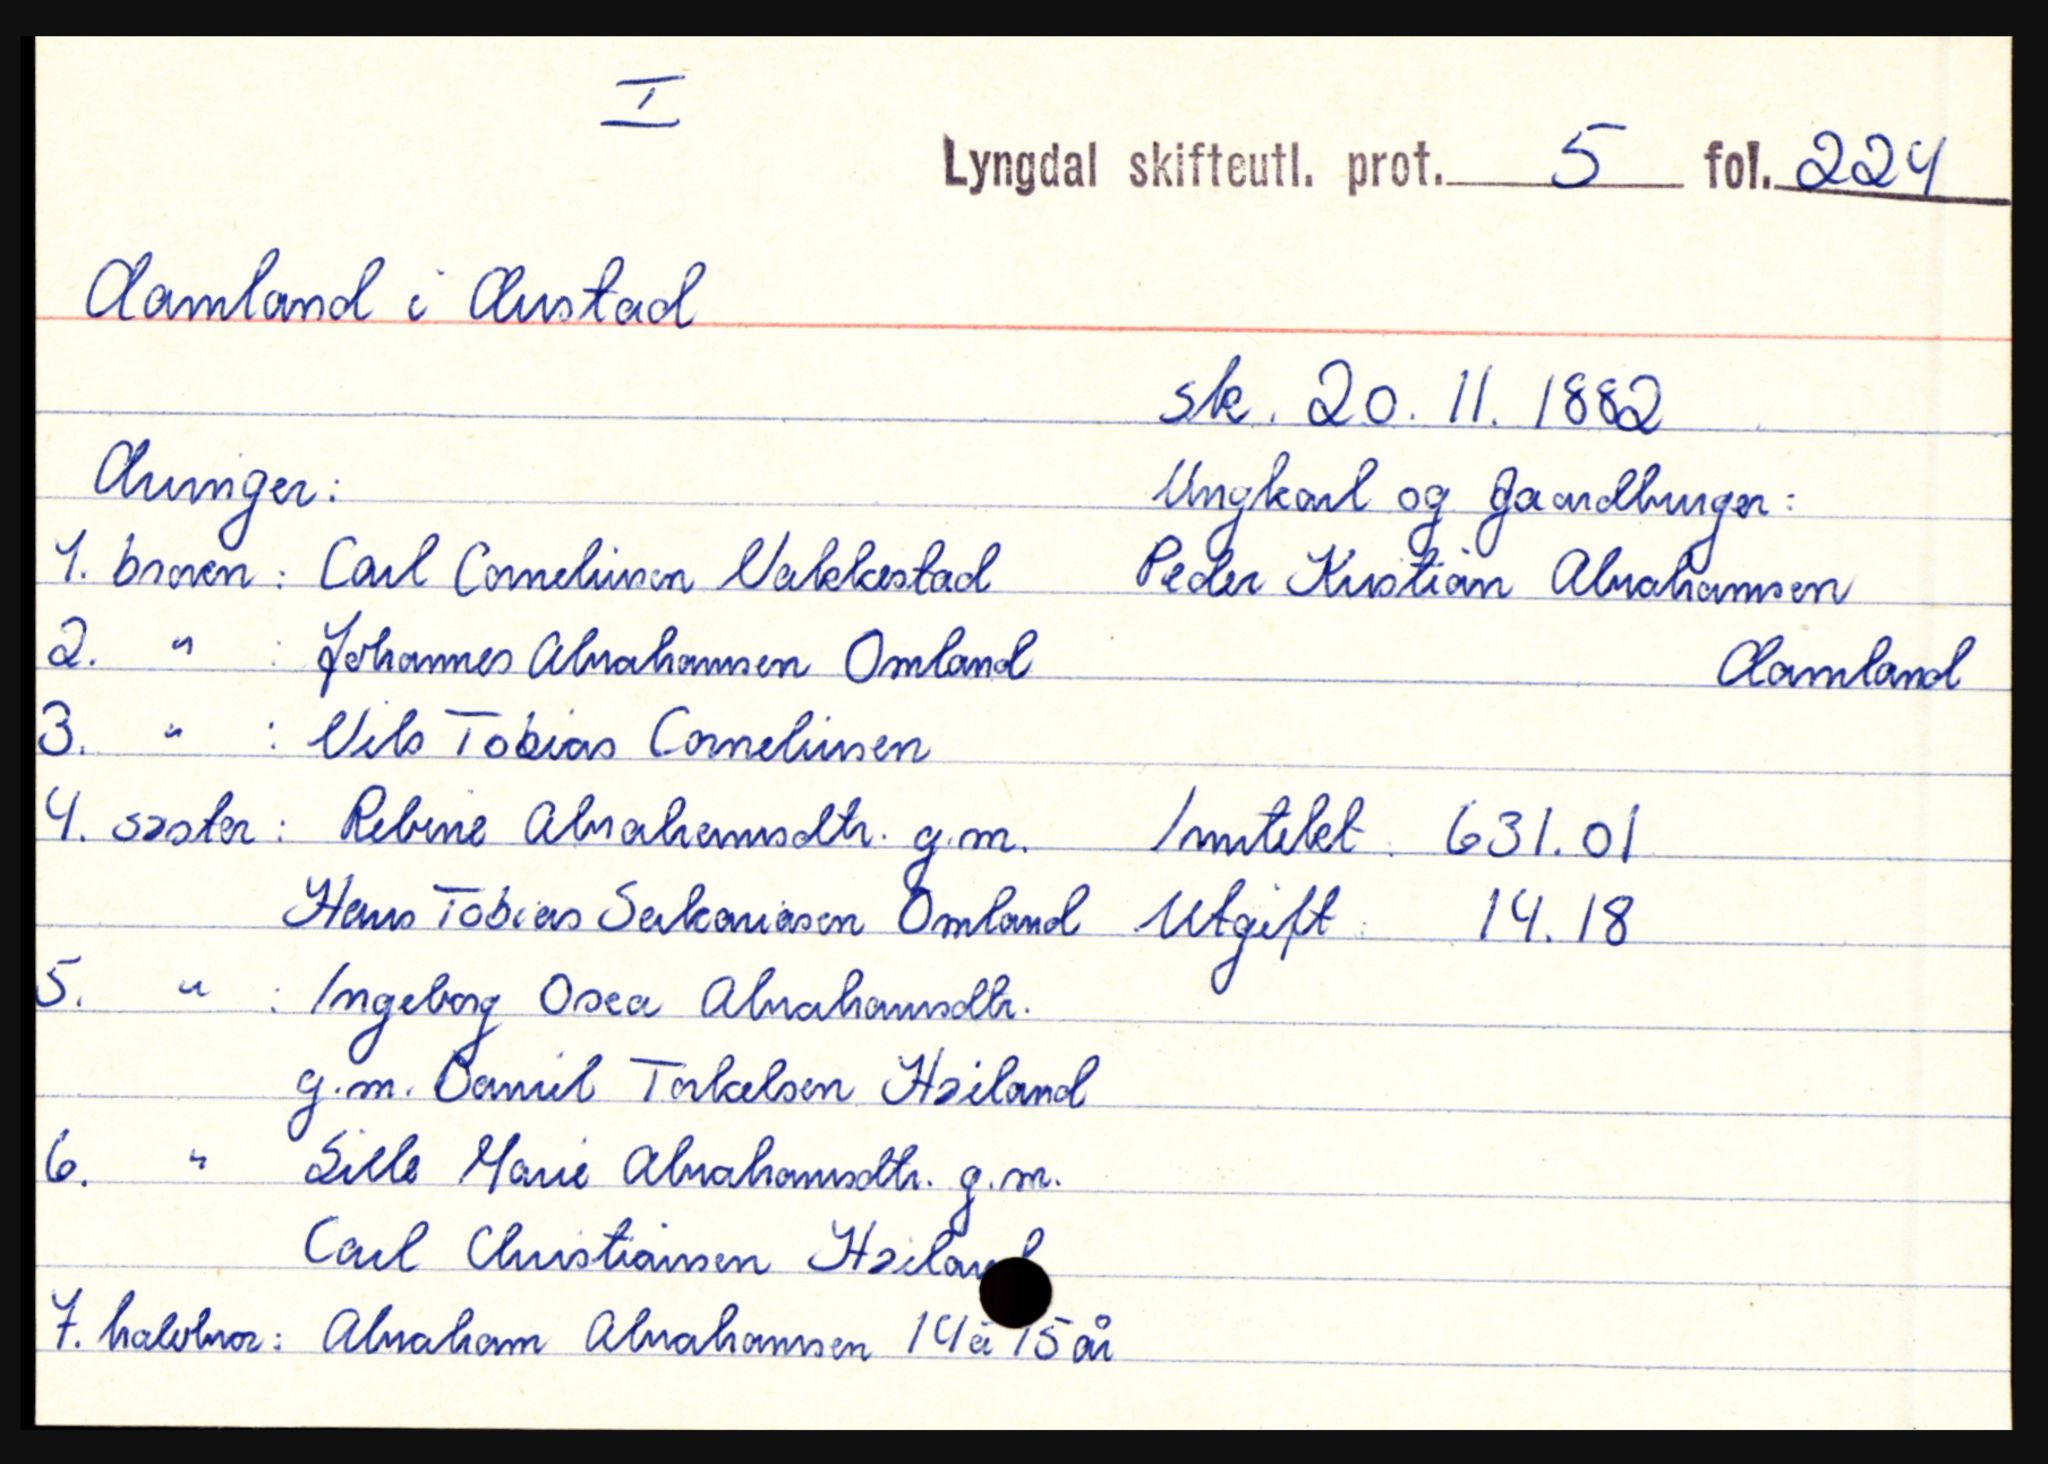 I
Lyngdal skifteutl. prot. 5 fol. 224
Aamland i Austad
sk. 20. 11. 1882
Arvinger:
Ungkarl og Gaardbruger:
1. broren: Carl Corneliusen Vakkestad
Peder Kristian Abrahamsen
2. " : Johannes Abrahamsen Omland
Aamland
3. " : Nils Tobias Corneliusen
4. søster: Rebine Abrahamsdtr. g.m.
Inntekt: 631.01
Hans Tobias Sakariasen Omland
Utgift: 14.18
5. " : Ingeborg Osea Abrahamsdtr.
g.m. Daniel Torkelsen Høiland
6. " Sille Marie Abrahamsdtr. g.m.
Carl Christiansen Høiland
7. halvbror: Abraham Abrahamsen 14 à 15 år